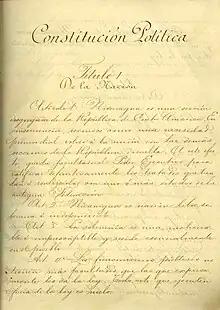 Constitución Política
Título I
De la Nación
Artículo 1º Nicaragua es una sección
disgregada de la República de Centro América. En
consecuencia, reconoce como una necesidad
primordial volver a la unión con las demás
secciones de la República disuelta. Al efecto
queda facultado el Poder Ejecutivo para
ratificar los tratados que tiendan
a realizarla con uno o más estados de la antigua
Federación
Art 2º Nicaragua es nación libre, so-
berana é independiente.
Art 3º La soberanía es una, inaliena-
ble é imprescriptible y reside esencialmente
en el pueblo
Art 4º Los funcionarios públicos no
tienen más facultades que las que expresa-
mente les da la ley. Todo acto que ejecuten
fuera de la ley es nulo.